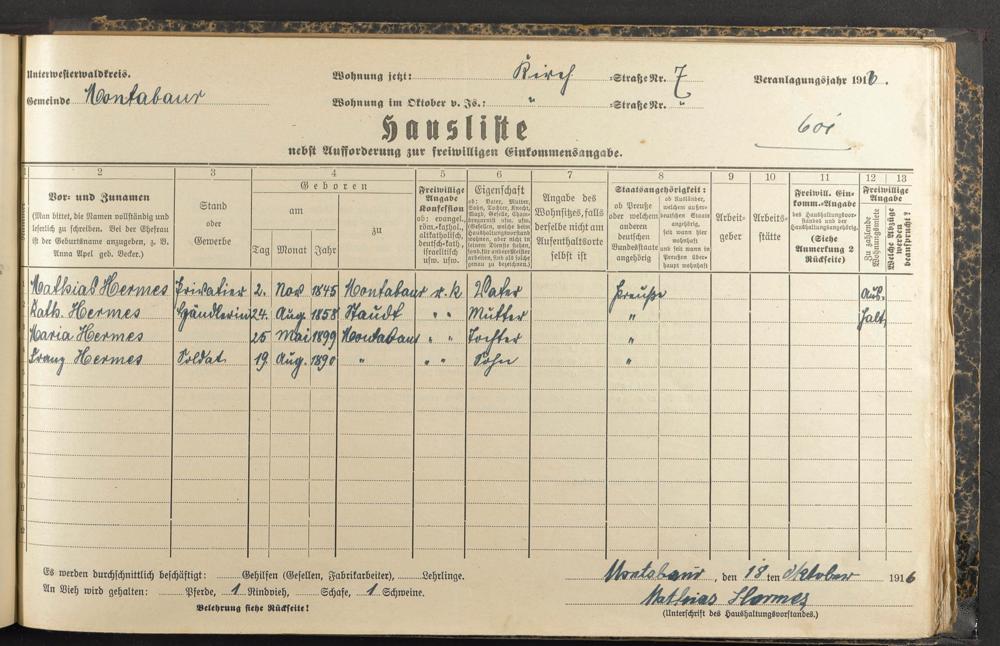 Unterwesterwaldkreis.
Wohnung jetzt: Kirch =Straße Nr. 7
Veranlagungsjahr 1916.
Gemeinde Montabaur
Wohnung im Oktober v. Js.: " =Straße Nr. "
Hausliste
601
nebst Aufforderung zur freiwilligen Einkommensangabe.
1 2 3 4 5 6 7 8 9 10 11 12 13
Vor- und Zunamen
(Man bittet, die Namen vollständig und
leserlich zu schreiben. Bei der Ehefrau
ist der Geburtsname anzugeben, z. B.
Anna Apel geb. Becker.)
Stand
oder
Gewerbe
Geboren
am
zu
Tag Monat Jahr
Freiwillige
Angabe
Konfession
ob: evangel.,
röm.-kathol.,
altkatholisch,
deutsch-kath.,
israelitisch
usw. usw.
Eigenschaft
ob: Vater, Mutter,
Sohn, Tochter, Knecht,
Magd, Geselle, Cham-
bregarnist usw. usw.
(Gesellen, welche beim
Haushaltungsvorstand
wohnen, aber nicht in
seinem Dienste stehen,
sind als solche
genau zu bezeichnen.)
Angabe des
Wohnsitzes, falls
derselbe nicht am
Aufenthaltsorte
selbst ist
Staatsangehörigkeit:
ob Preuße
oder welchem
anderen
deutschen
Bundesstaate
angehörig
ob Ausländer,
welchem außer-
deutschen Staate
angehörig,
seit wann hier
wohnhaft
und seit wann in
Preußen über-
haupt wohnhaft
Arbeit-
geber
Arbeits-
stätte
Freiwill. Ein-
komm.-Angabe
des Haushaltungsvor-
standes und der
Haushaltungsangehörig.
(Siehe
Anmerkung 2
Rückseite)
Freiwillige
Angabe
Zu zahlende
Wohnungsmiete
Welche Abzüge
werden
beansprucht?
Mathias Hermes Privatier 2. Nov 1845 Montabaur r. k Vater Preuße
Kath. Hermes Händlerin 24. Aug. 1858 Staudt " " Mutter "
Maria Hermes 25 Mai 1899 Montabaur " " Tochter "
Franz Hermes Soldat 19. Aug. 1890 " " " Sohn "
Es werden durchschnittlich beschäftigt: Gehilfen (Gesellen, Fabrikarbeiter), Lehrlinge.
Montabaur, den 18 ten Oktober 1916
An Vieh wird gehalten: Pferde, 1 Rindvieh, Schafe, 1 Schweine.
Mathias Hermes
Belehrung siehe Rückseite!
(Unterschrift des Haushaltungsvorstandes.)